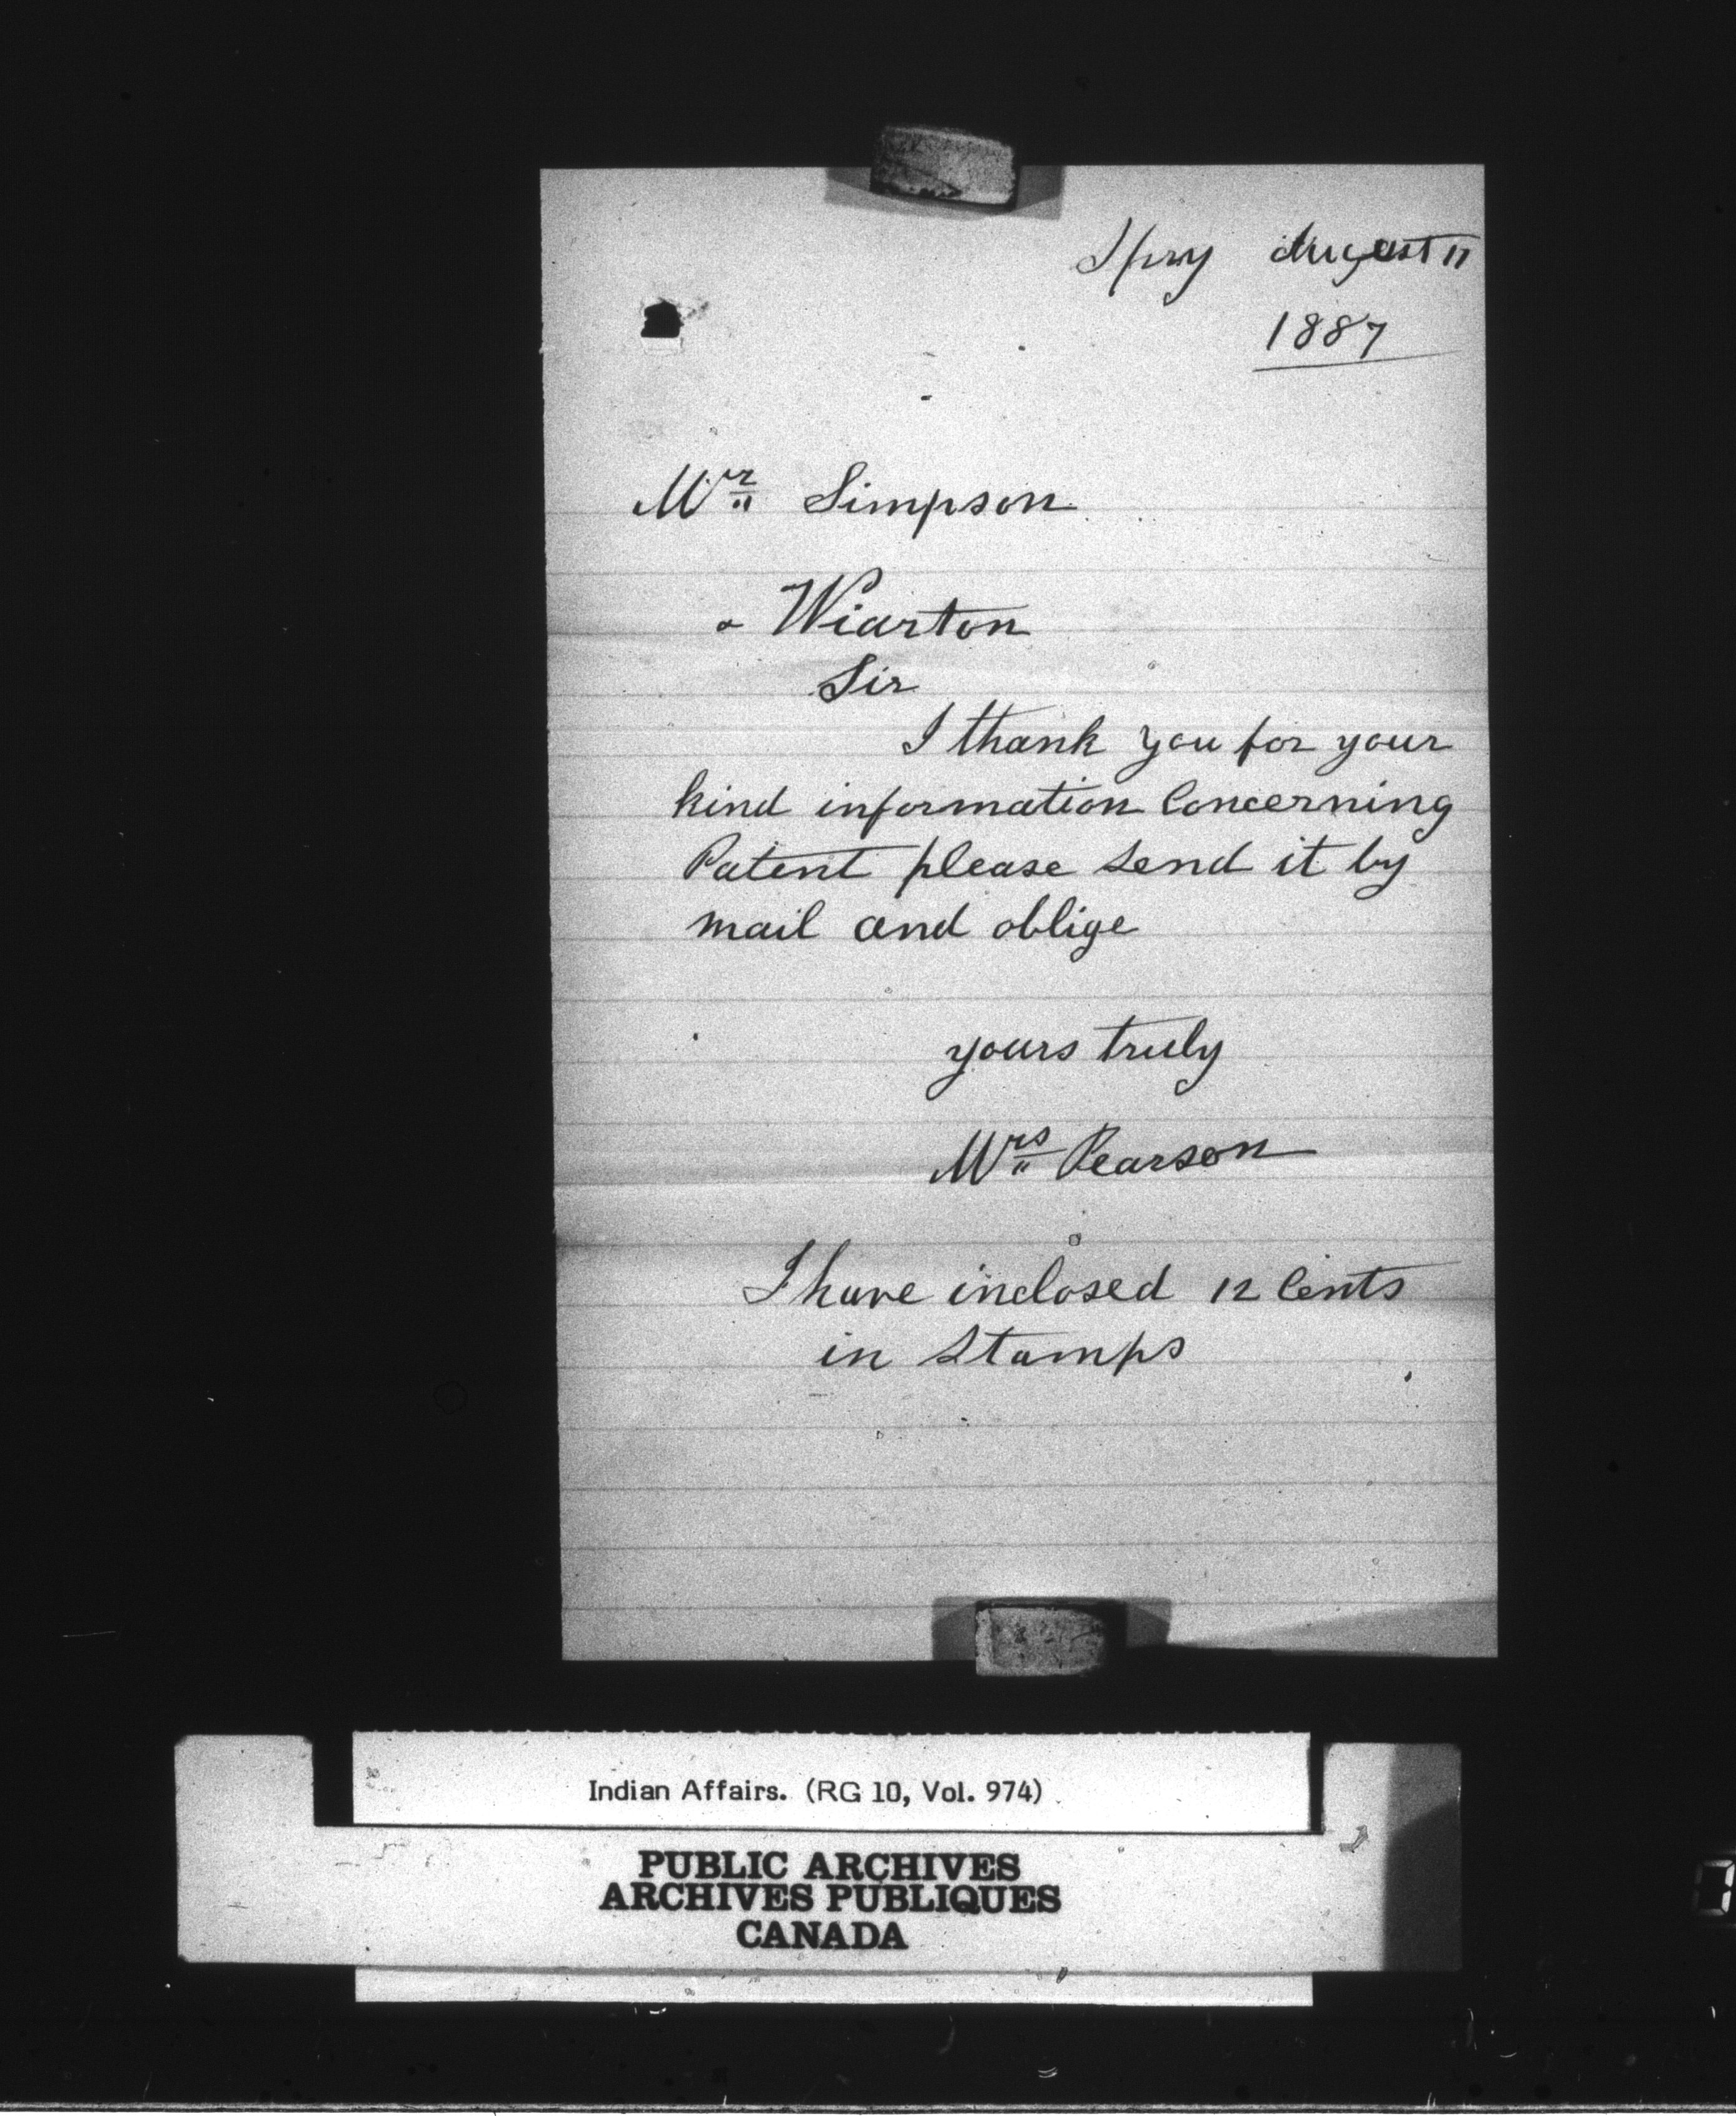 Spry August 11
1887
Mr Simpson
Wiarton
Sir
I thank you for your
kind information Concerning
Patent please send it by
mail and oblige
yours truly
Mrs Pearson
I have inclosed 12 Cents
in Stamps
Indian Affairs. (RG 10, Vol. 974)
PUBLIC ARCHIVES
ARCHIVES PUBLIQUES
CANADA